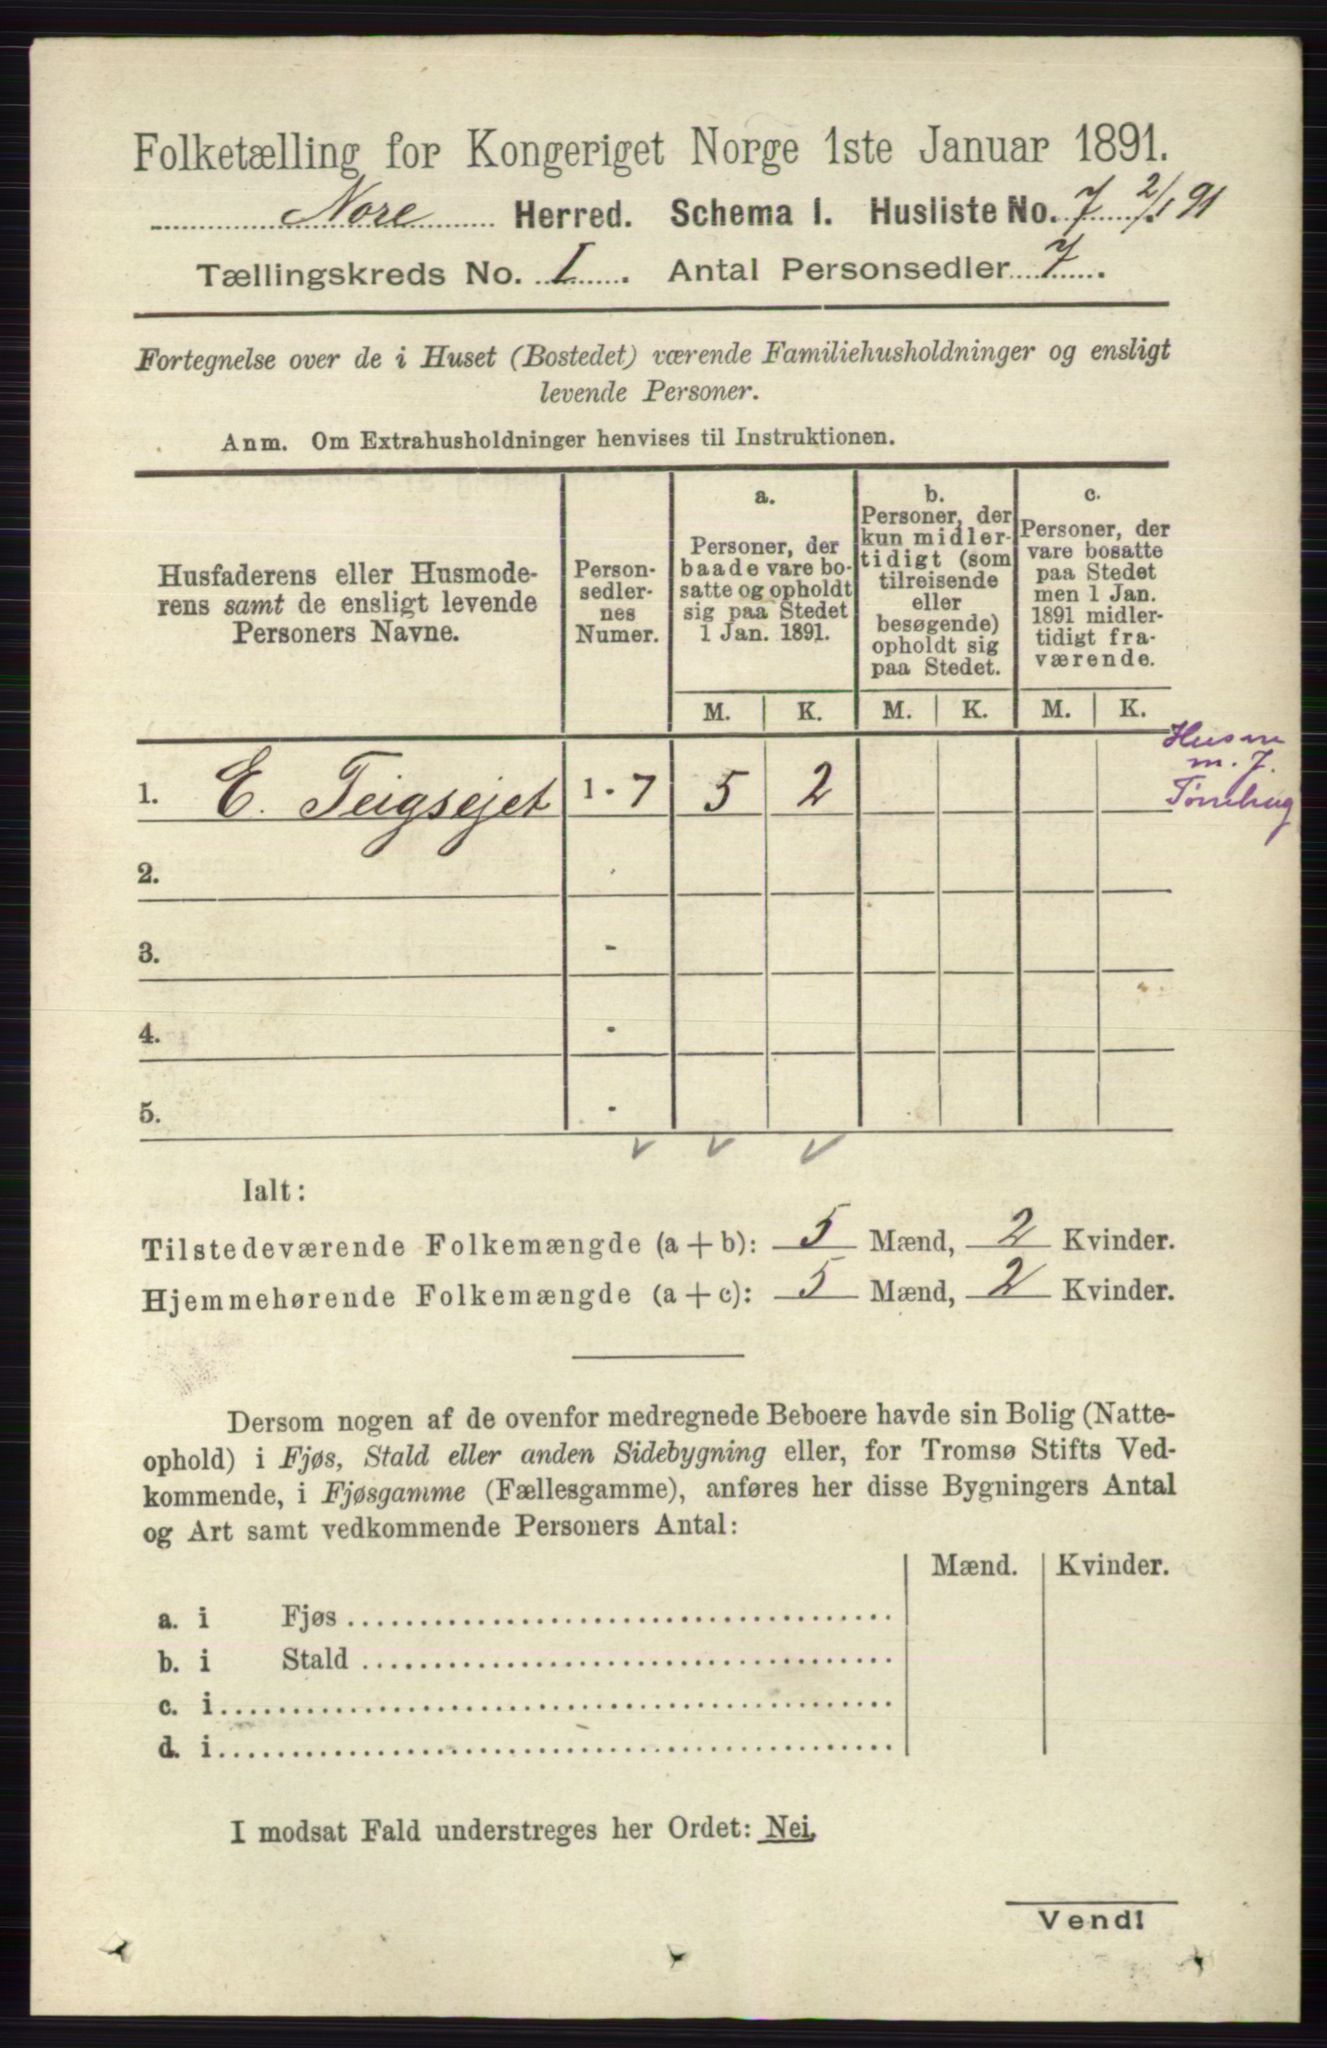 Folketælling for Kongeriget Norge 1ste Januar 1891.
Nore Herred. Schema I. Husliste No. 7 2/1 91
Tællingskreds No. I. Antal Personsedler 7.
Fortegnelse over de i Huset (Bostedet) værende Familiehusholdninger og ensligt
levende Personer.
Anm. Om Extrahusholdninger henvises til Instruktionen.
Husfaderens eller Husmode-
rens samt de ensligt levende
Personers Navne.
Person-
sedler-
nes
Numer.
a.
Personer, der
baade vare bo-
satte og opholdt
sig paa Stedet
1 Jan. 1891.
b.
Personer, der
kun midler-
tidigt (som
tilreisende
eller
besøgende)
opholdt sig
paa Stedet.
c.
Personer, der
vare bosatte
paa Stedet
men 1 Jan.
1891 midler-
tidigt fra-
værende.
M. K. M. K. M. K.
1. E. Teigsejet 1 - 7 5 2
Husm
m. J.
2.
3. -
4. -
5. -
Ialt:
Tilstedeværende Folkemængde (a + b): 5 Mænd, 2 Kvinder.
Hjemmehørende Folkemængde (a + c): 5 Mænd, 2 Kvinder.
Dersom nogen af de ovenfor medregnede Beboere havde sin Bolig (Natte-
ophold) i Fjøs, Stald eller anden Sidebygning eller, for Tromsø Stifts Ved-
kommende, i Fjøsgamme (Fællesgamme), anføres her disse Bygningers Antal
og Art samt vedkommende Personers Antal:
Mænd. Kvinder.
a. i Fjøs
b. i Stald
c. i
d. i
I modsat Fald understreges her Ordet: Nei.
Vend!